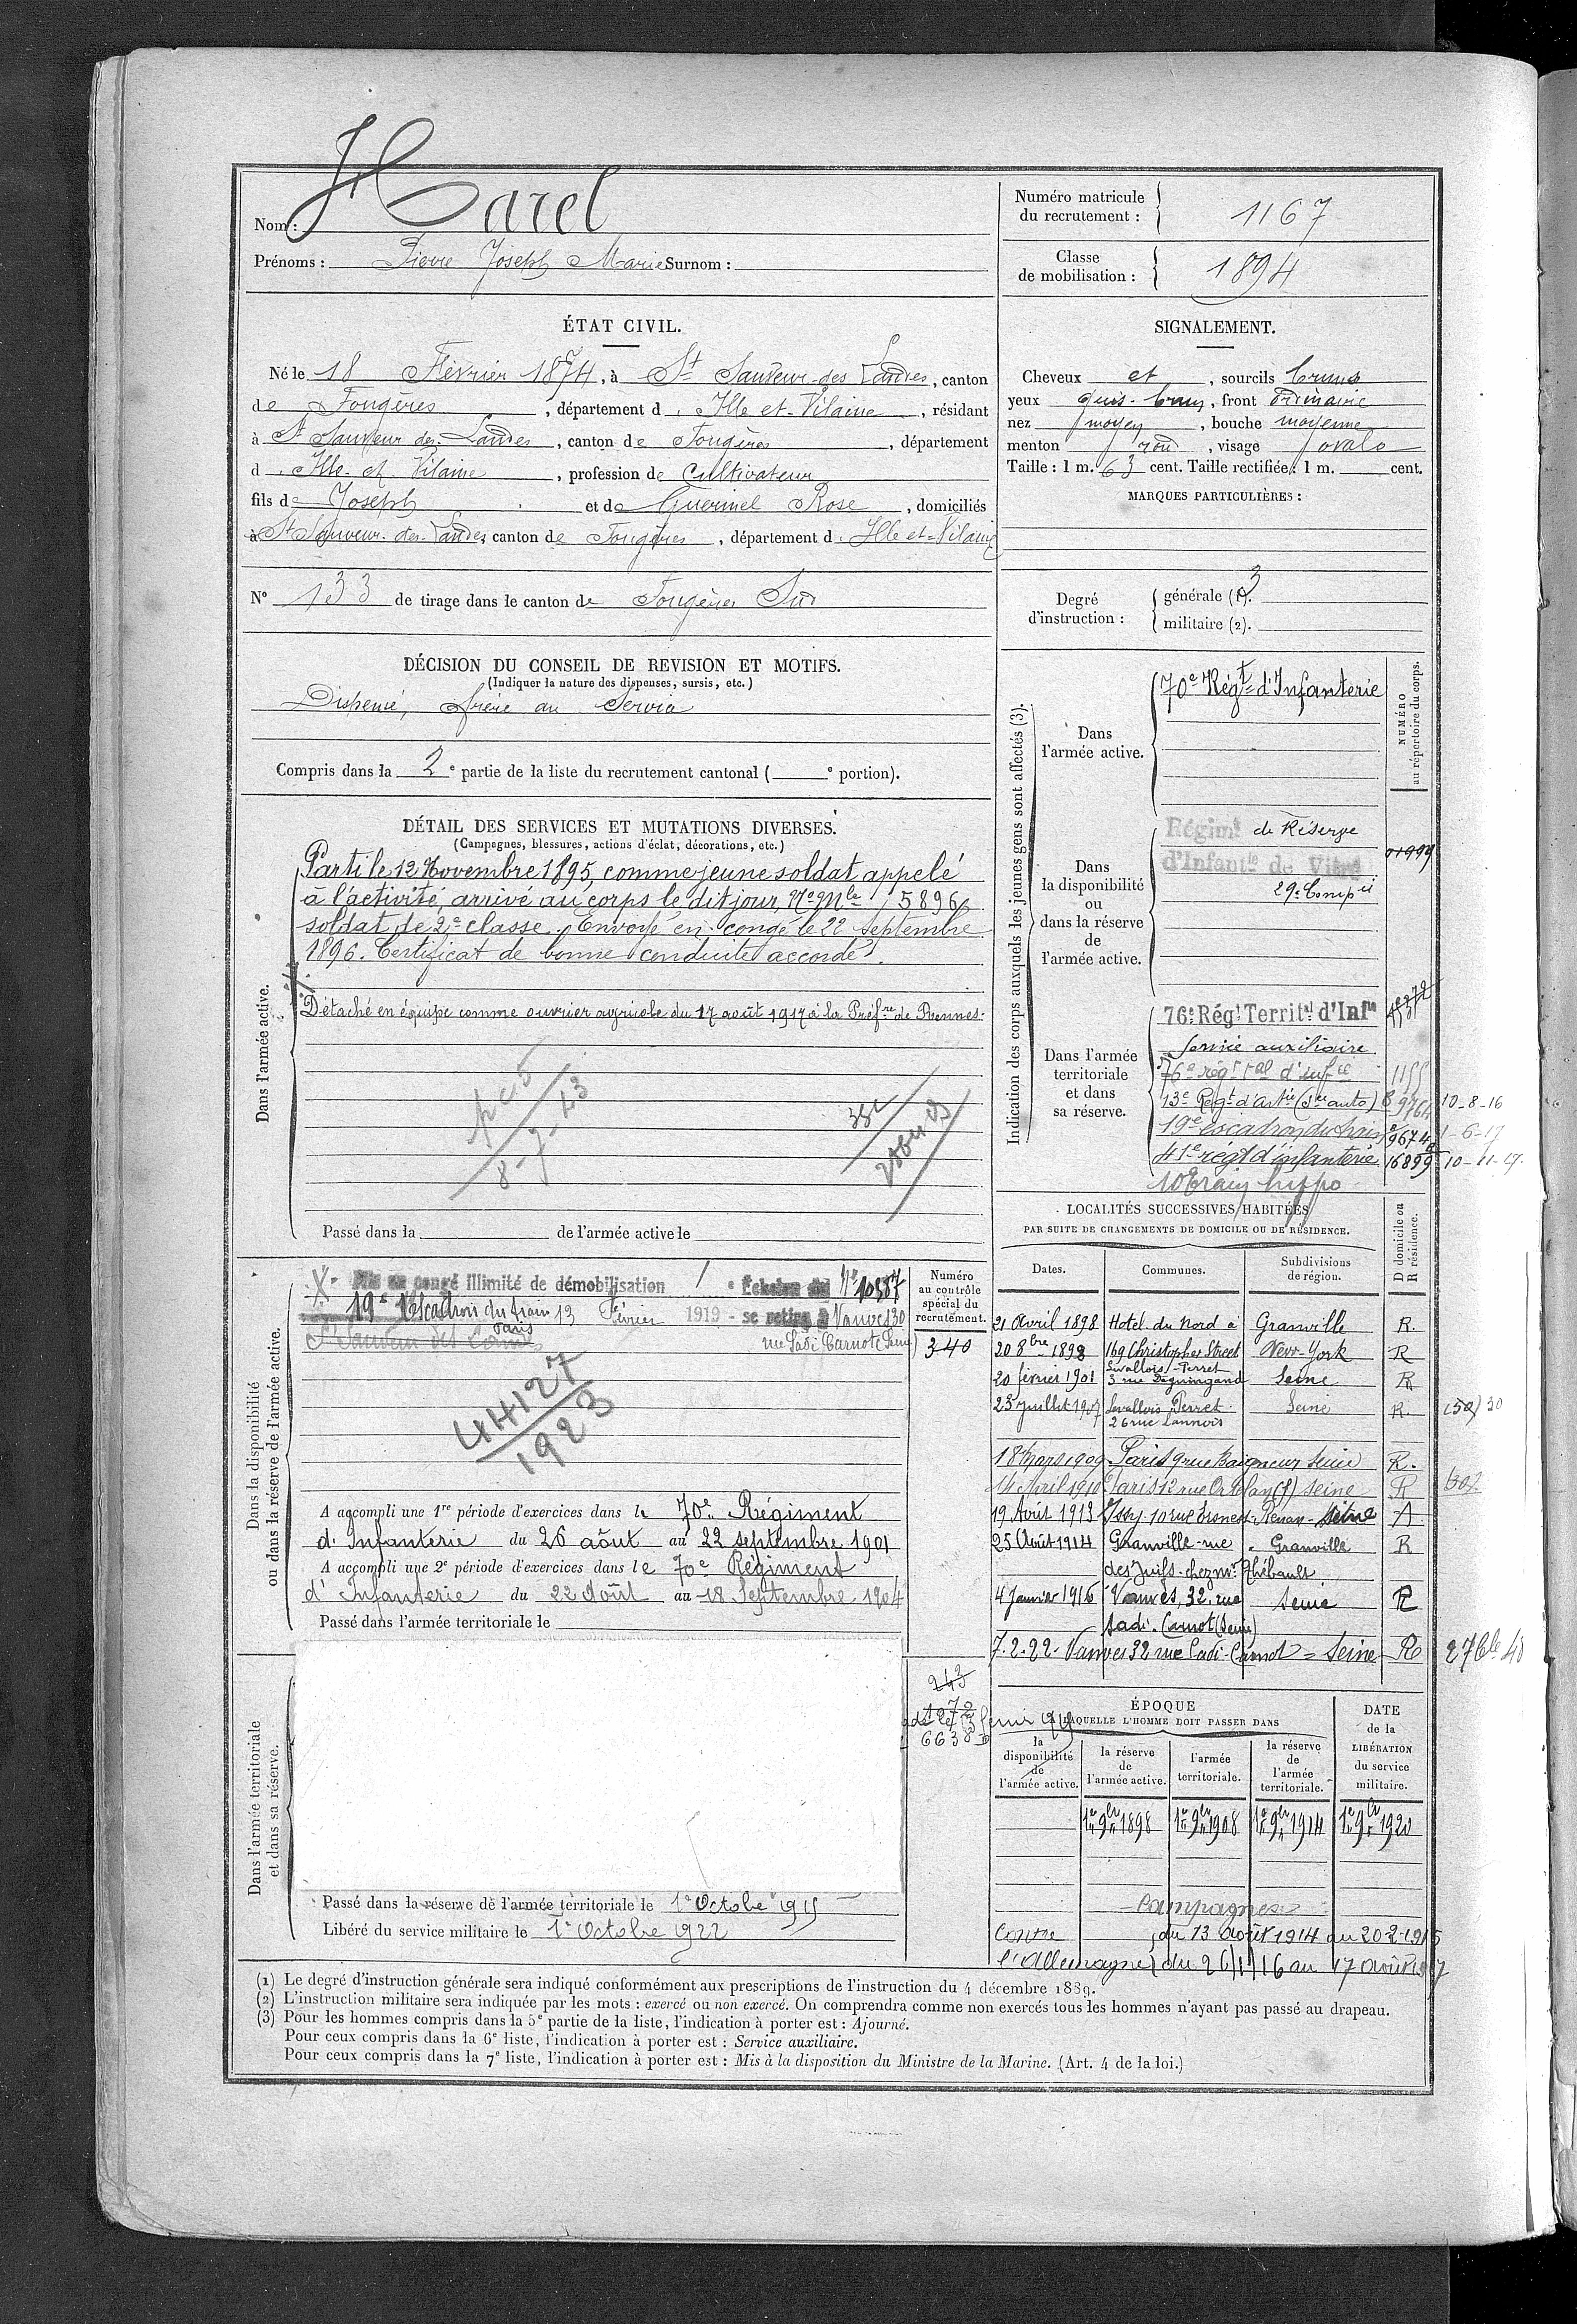 Nom : Harel
Prénoms : Pierre Joseph Marie Surnom :
Numéro matricule du recrutement : 1167
Classe de mobilisation : 1894
ÉTAT CIVIL.
Né le 18 Février 1874, à St Sauveur-des-Landes, canton
de Fougères, département d'Ille-et-Vilaine, résidant
à St Sauveur des Landes, canton de Fougères, département
d'Ille-et-Vilaine, profession de Cultivateur
fils de Joseph et de Guerinel Rose, domiciliés
à St Sauveur-des-Landes, canton de Fougères, département d'Ille et-Vilaine
N° 133 de tirage dans le canton de Fougères Sud
SIGNALEMENT.
Cheveux et, sourcils bruns
yeux gris-brun, front ordinaire
nez moyen, bouche moyenne
menton rond, visage ovale
Taille : 1 m. 63 cent. Taille rectifiée : 1 m. cent.
MARQUES PARTICULIÈRES :
Degré d'instruction :
générale (1). 3
militaire (2).
DÉCISION DU CONSEIL DE REVISION ET MOTIFS.
(Indiquer la nature des dispenses, sursis, etc.)
Dispensé, frère au Service
Compris dans la 2e partie de la liste du recrutement cantonal ( e portion).
DÉTAIL DES SERVICES ET MUTATIONS DIVERSES.
(Campagnes, blessures, actions d'éclat, décorations, etc.)
Dans l'armée active.
Parti le 12 Novembre 1895, comme jeune soldat appelé
à l'activité, arrivé au corps le dit jour, No Mle 5896,
soldat de 2e classe. Envoyé en congé le 22 septembre
1896. Certificat de bonne conduite accordé.
Détaché en équipe comme ouvrier agricole du 17 août 1917 à la Préfre de Rennes.
Passé dans la de l'armée active le
Indication des corps auxquels les jeunes gens sont affectés (3).
NUMÉRO au répertoire du corps.
Dans l'armée active.
70e Régt d'Infanterie
Dans la disponibilité ou dans la réserve de l'armée active.
Régimt de Réserve
d'Infantie de Vitré
29e Compie
Dans l'armée territoriale et dans sa réserve.
76e Régt Territal d'Infie
Service auxiliaire
76e régt tal d'infie 1155
13e Régt d'artie (Sce auto) 9764 10-8-16
19e escadron du train 9674 1-6-17
41e régt d'infanterie 16899 10-11-17.
10 Train hippo
Dans la disponibilité ou dans la réserve de l'armée active.
Mis en congé illimité de démobilisation 1e Echelon No 10587
19e Escadron du train 13 Février 1919 - se retire à Vanves 30
rue Sadi Carnot (Seine)
Paris
44127
1923
Numéro au contrôle spécial du recrutement.
340
A accompli une 1re période d'exercices dans le 70e Régiment
d'Infanterie du 26 août au 22 septembre 1901
A accompli une 2e période d'exercices dans le 70e Régiment
d'Infanterie du 22 Août au 18 Septembre 1904
Passé dans l'armée territoriale le
LOCALITÉS SUCCESSIVES HABITÉES
PAR SUITE DE CHANGEMENTS DE DOMICILE OU DE RÉSIDENCE.
Dates. Communes. Subdivisions de région. D domicile ou R résidence.
21 Avril 1898 Hotel du Nord à Granville R.
20 8bre 1898 169 Christopher Street New-York R
20 février 1901 Levallois-Perret 3 rue Deguingand Seine R
23 juillet 1907 Levallois Perret 26 rue Lannois Seine R.
18 Mars 1909 Paris 9 rue Baigneur Seine R.
14 Avril 1910 Paris 12 rue Ortolan (5) Seine R
19 Août 1913 Issy. 10 rue Ernest-Renan - Seine
25 Août 1914 Granville-rue Granville R
des Juifs-chez Mr Thébault
4 Janvier 1916 Vanves, 32, rue Seine R
Sadi-Carnot (Seine)
7.2.22. Vanves 32 rue Sadi-Carnot = Seine R
Dans l'armée territoriale et dans sa réserve.
243
1272
6638
Passé dans la réserve de l'armée territoriale le 1er Octobre 1915
Libéré du service militaire le 1er Octobre 1922
ÉPOQUE
À LAQUELLE L'HOMME DOIT PASSER DANS
la disponibilité de l'armée active. la réserve de l'armée active. l'armée territoriale. la réserve de l'armée territoriale. DATE de la LIBÉRATION du service militaire.
1er 9bre 1898 1er 9bre 1908 1er 9bre 1914 1er 9bre 1920
Campagnes
Contre du 13 août 1914 au 20-2-1915
l'Allemagne du 26/1/16 au 17 août 1917
(1) Le degré d'instruction générale sera indiqué conformément aux prescriptions de l'instruction du 4 décembre 1889.
(2) L'instruction militaire sera indiquée par les mots : exercé ou non exercé. On comprendra comme non exercés tous les hommes n'ayant pas passé au drapeau.
(3) Pour les hommes compris dans la 5e partie de la liste, l'indication à porter est : Ajourné.
Pour ceux compris dans la 6e liste, l'indication à porter est : Service auxiliaire.
Pour ceux compris dans la 7e liste, l'indication à porter est : Mis à la disposition du Ministre de la Marine. (Art. 4 de la loi.)